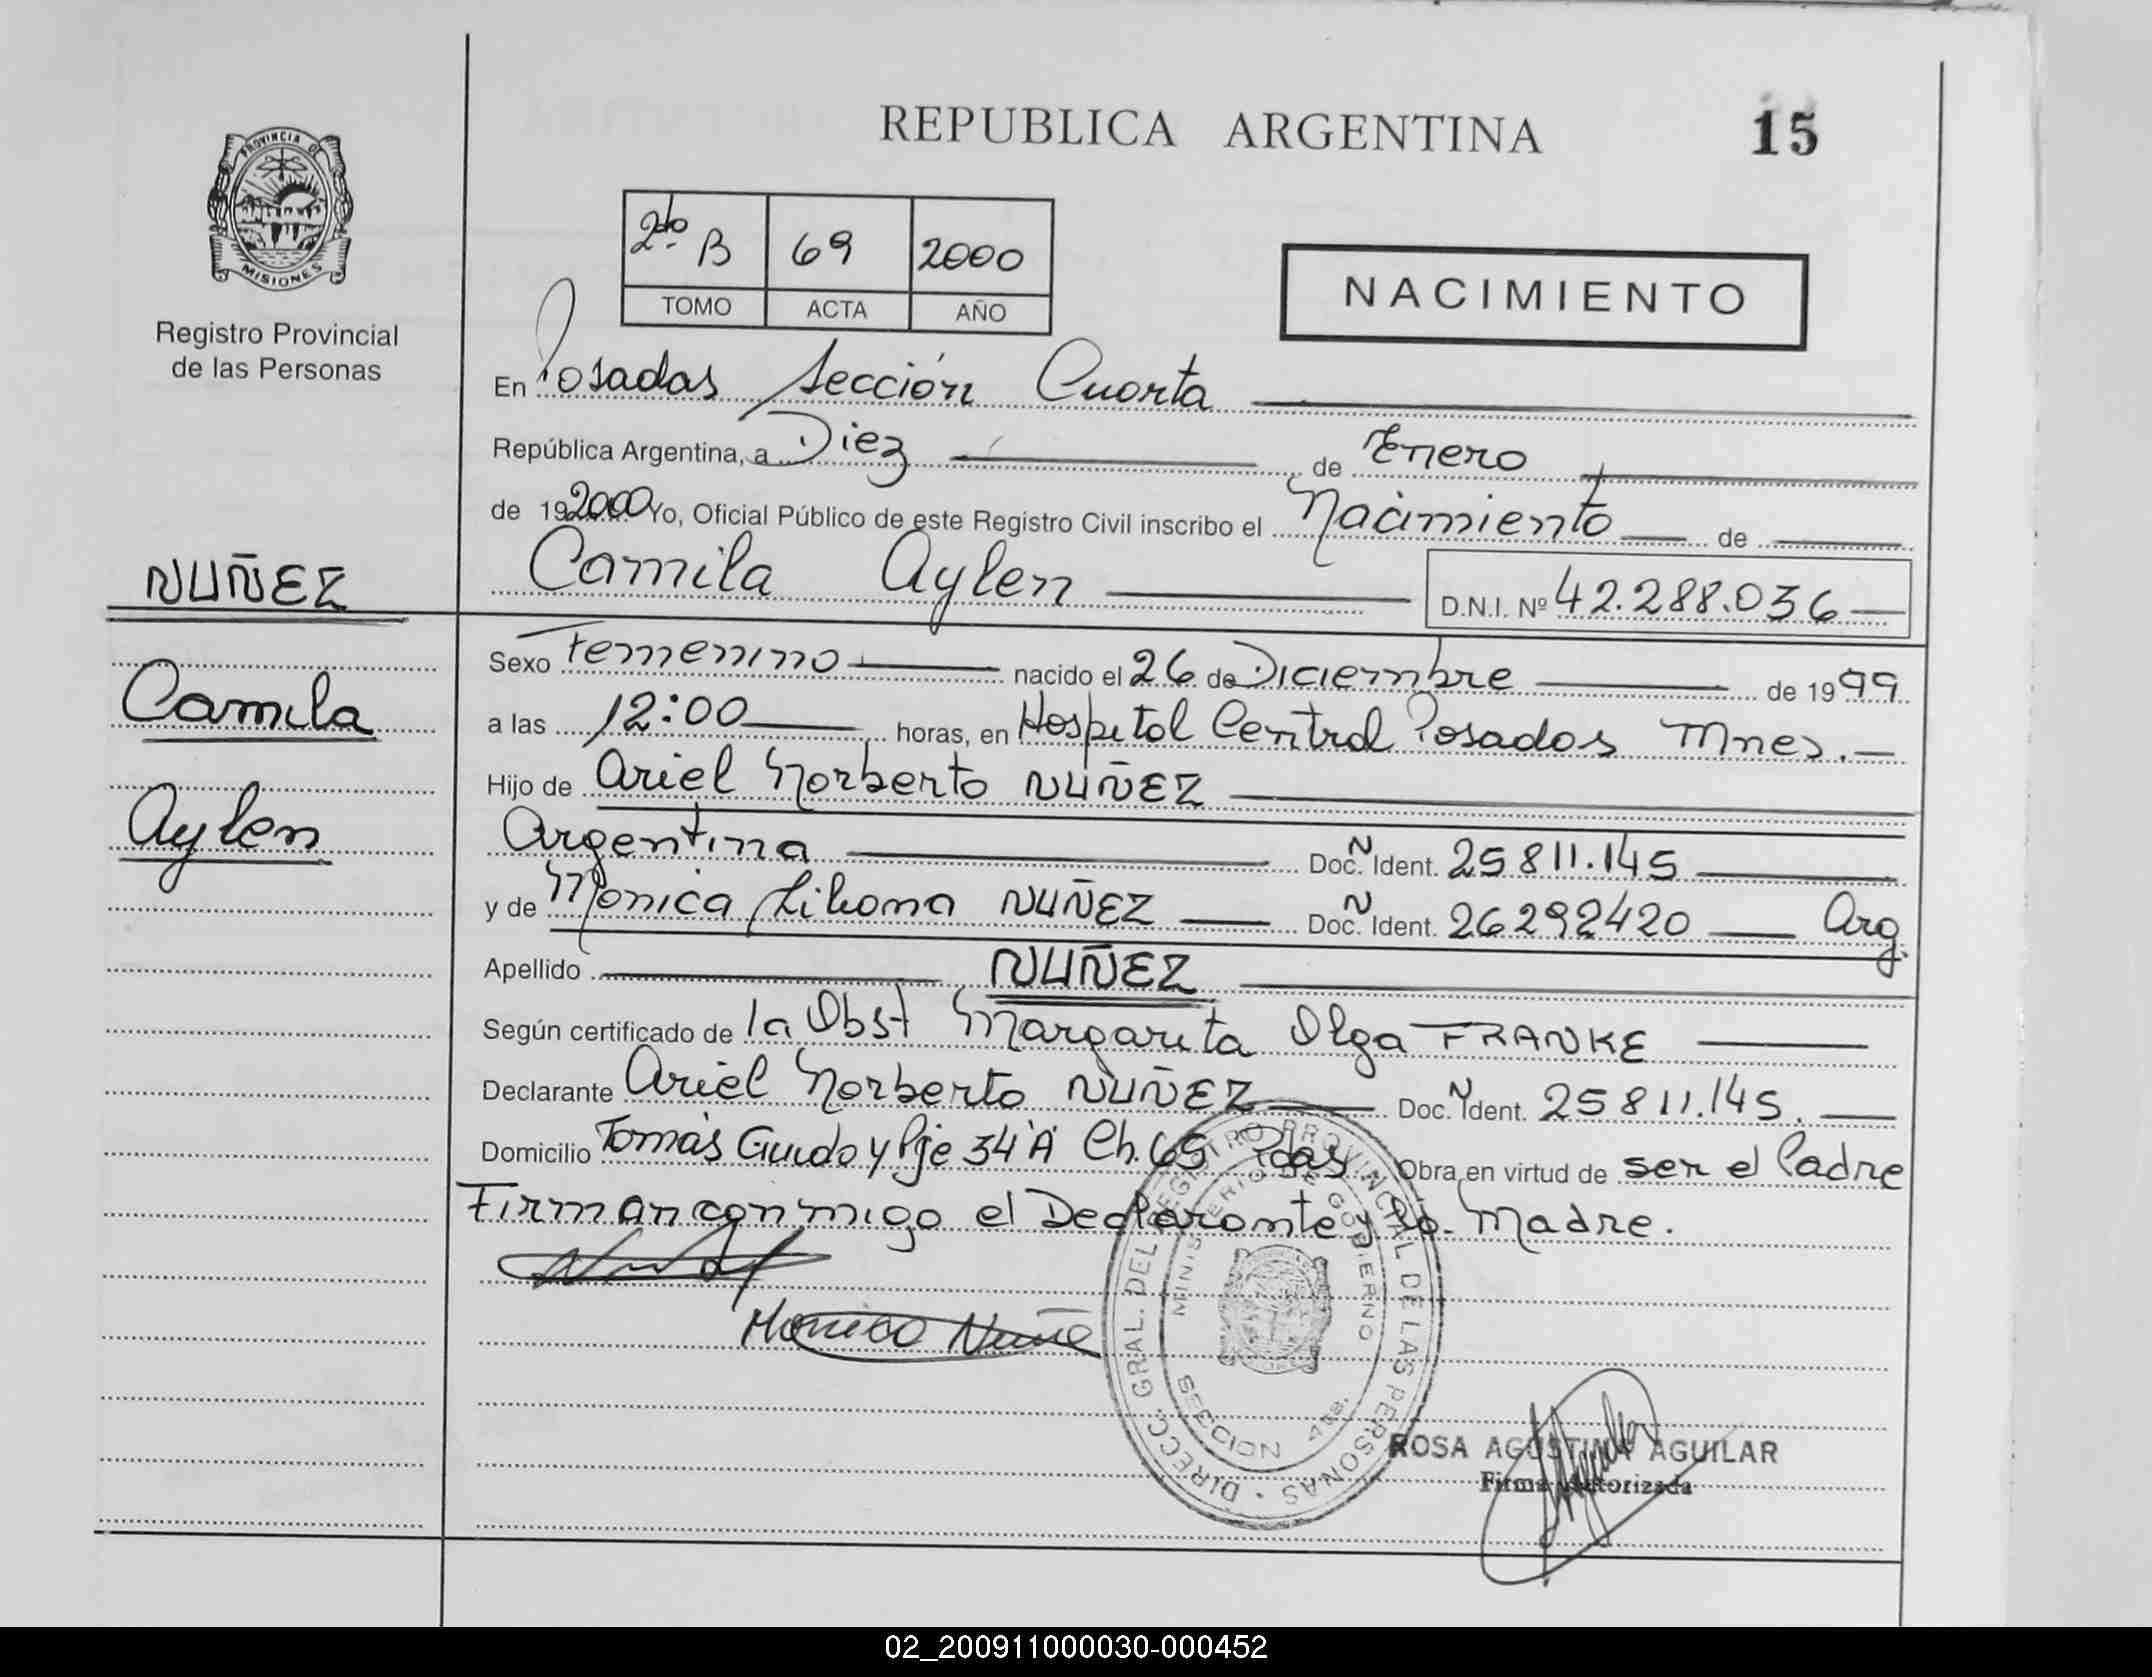 REPUBLICA ARGENTINA
15
PROVINCIA DE
MISIONES
Registro Provincial
de las Personas
2do. B 69 2000
TOMO ACTA AÑO
NACIMIENTO
En Posadas Sección Cuarta
República Argentina, a Diez de Enero
de 192000 Yo, Oficial Público de este Registro Civil inscribo el Nacimiento de
Camila Aylen D.N.I. Nº 42.288.036
NUÑEZ
Camila
Aylen
Sexo Femenino nacido el 26 de Diciembre de 1999.
a las 12:00 horas, en Hospital Central Posadas Mnes.
Hijo de Ariel Norberto NUÑEZ
Argentina Doc. N Ident. 25811.145
y de Monica Liliana NUÑEZ Doc. N Ident. 26292420 Arg.
Apellido NUÑEZ
Según certificado de la Obst Margarita Olga FRANKE
Declarante Ariel Norberto NUÑEZ Doc. N Ident. 25811.145.
Domicilio Tomás Guido y Pje 34 "A" Ch. 65 Pdas Obra en virtud de ser el Padre
Firman conmigo el Declarante y la Madre.
Monica Nuñe
DIRECC. GRAL. DEL REGISTRO PROVINCIAL DE LAS PERSONAS
MINISTERIO DE GOBIERNO
SECCION 4ta.
ROSA AGOSTINA AGUILAR
Firma Autorizada
02_200911000030-000452